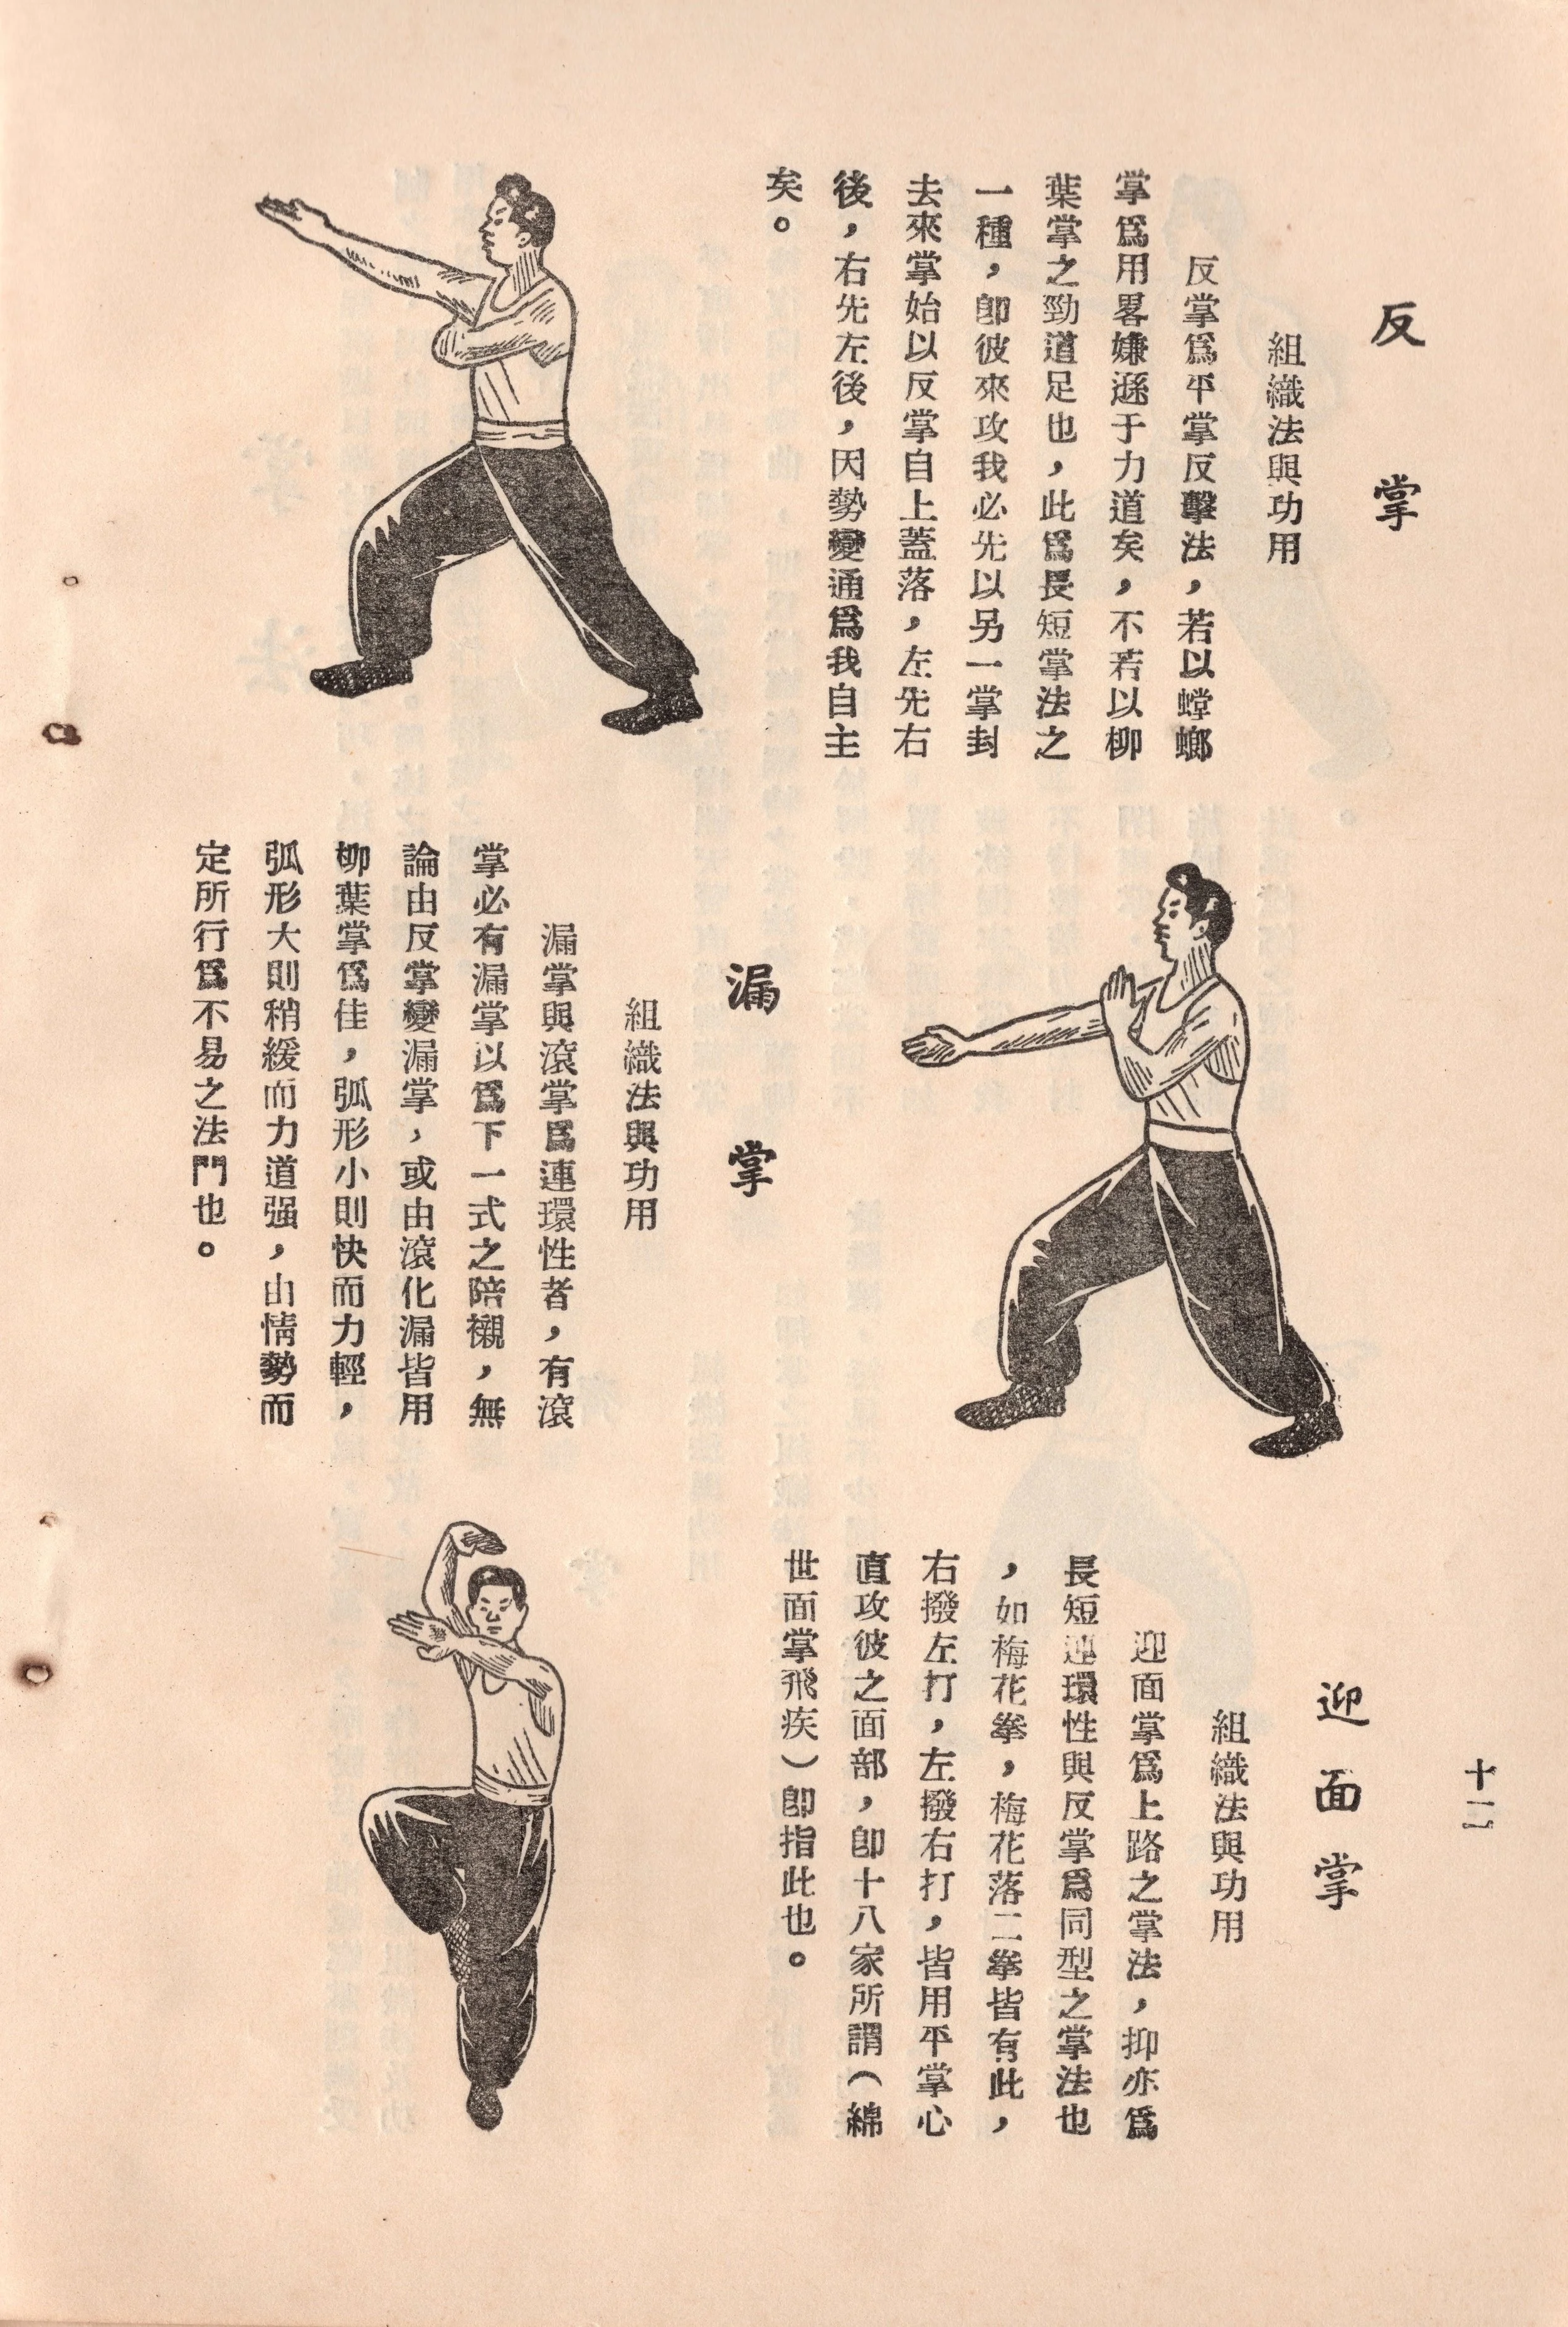 反掌
組織法與功用
反掌爲平掌反擊法，若以螳螂
掌爲用畧嫌遜于力道矣，不若以柳
葉掌之勁道足也，此爲長短掌法之
一種，卽彼來攻我必先以另一掌封
去來掌始以反掌自上蓋落，左先右
後，右先左後，因勢變通爲我自主
矣。
漏掌
組織法與功用
漏掌與滾掌爲連環性者，有滾
掌必有漏掌以爲下一式之陪襯，無
論由反掌變漏掌，或由滾化漏皆用
柳葉掌爲佳，弧形小則快而力輕，
弧形大則稍緩而力道强，由情勢而
定所行爲不易之法門也。
十二
迎面掌
組織法與功用
迎面掌爲上路之掌法，抑亦爲
長短連環性與反掌爲同型之掌法也
，如梅花拳，梅花落二拳皆有此，
右撥左打，左撥右打，皆用平掌心
直攻彼之面部，卽十八家所謂（綿
世面掌飛疾）卽指此也。